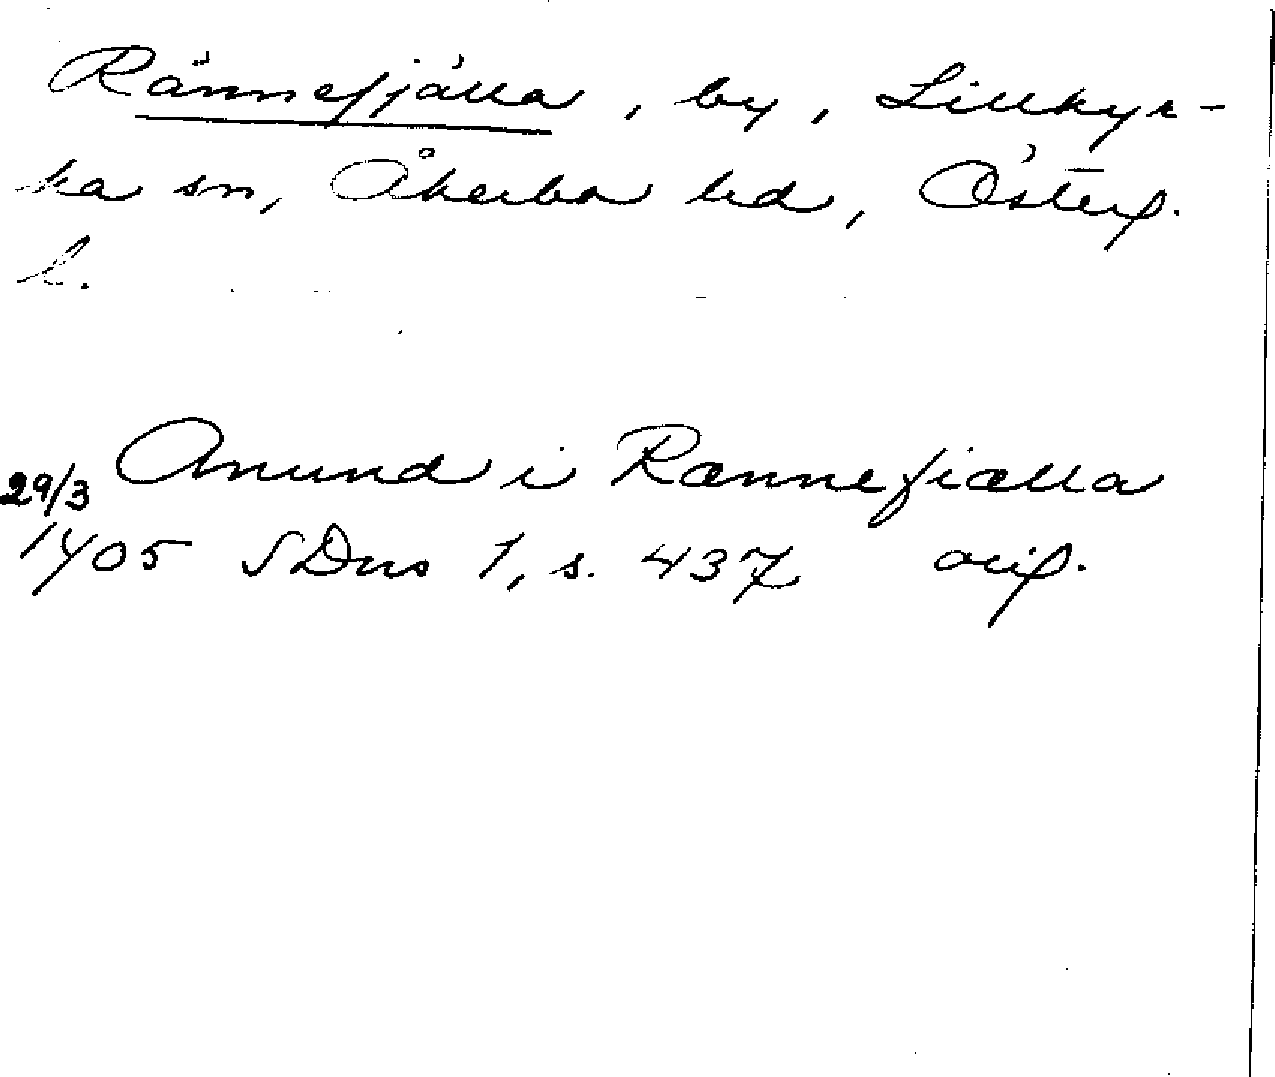 Rännefjälla, by, Lillkyr-
ka sn, Åkerbo hd, Österg.
l.
Anund i Rænnefiælla
29/3
1405 SDns 1, s. 437 orig.